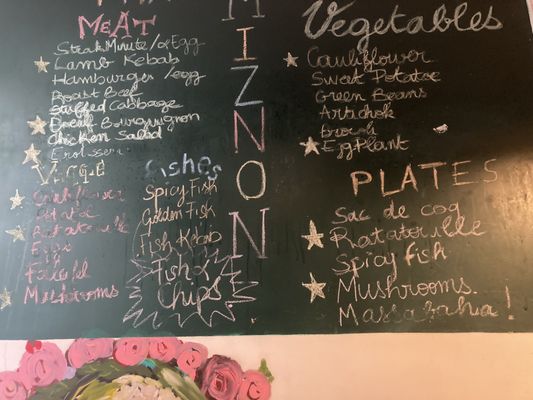 MEAT
Steak Minute / or Egg
Lamb Kebab
Hamburger / egg
Roast Beef
Stuffed Cabbage
Beouf Bourguignon
Chicken Salad
V.E.G.E
Cauliflower
Potatoe
Ratatouille
Eggs
Falafel
Mushtrooms
MIZNON
Fishes
Spicy Fish
Golden Fish
Fish Kebab
Fish & Chips
Vegetables
Cauliflower
Sweet Potatoe
Green Beans
Artichok
Brocoli
EggPlant
PLATES
Sac de coq
Ratatouille
Spicy fish
Mushrooms
Massabahia!